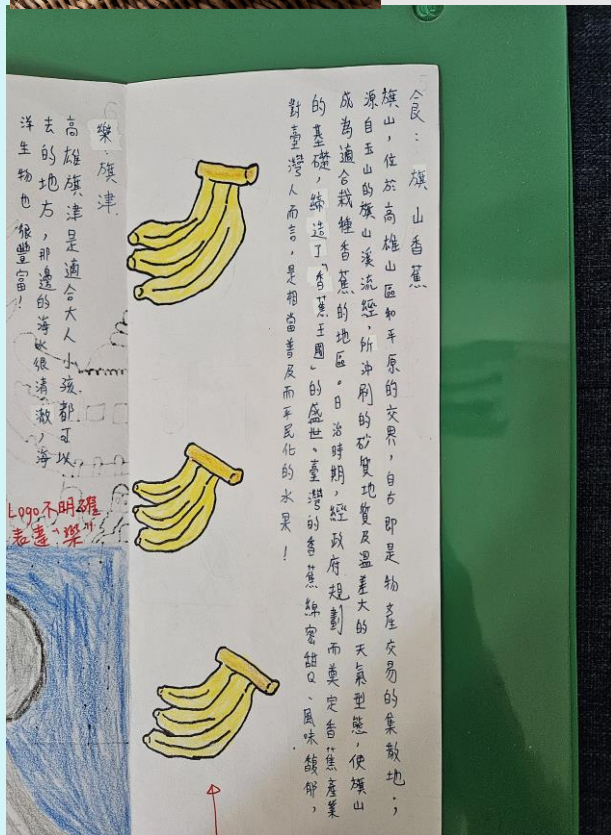 食：旗山香蕉
旗山，位於高雄山區和平原的交界，自古即是物產交易的集散地；
源自玉山的旗山溪流經，所沖刷的砂質地質及溫差大的天氣型態，使旗山
成為適合栽種香蕉的地區。日治時期，經政府規劃而奠定香蕉產業
的基礎，締造了「香蕉王國」的盛世。臺灣的香蕉綿密甜Q、風味馥郁，
對臺灣人而言，是相當普及而平民化的水果！
樂：旗津
高雄旗津是適合大人小孩都可以
去的地方，那邊的海水很清澈，海
洋生物也很豐富！
Logo不明確
表達"樂"